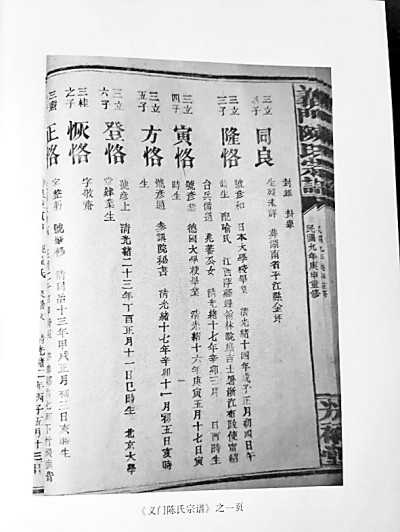 義門陳氏宗譜
民國九年庚申重修
三立
子
同良
生歿未詳 葬湖南省平江縣金坪
三立
三子
隆恪
號彥和 日本大學校學業 清光緒十四年戊子正月初四日午
時生 配喻氏 江西萍鄉翰林院庶吉士署浙江布政使富紹
台兵備道 兆蕃公女 清光緒十七年辛卯三月 日酉時生
三立
四子
寅恪
號彥恭 德國大學校學業 清光緒十六年庚寅五月十七日寅
時生
三立
五子
方恪
號彥通 參議院秘書 清光緒十七年辛卯十一月初五日亥時
生
三立
六子
登恪
號彥上 清光緒二十三年丁酉正月十一日巳時生 北京大學
堂肄業生
三桂
之子
恢恪
字敬齋
三
正恪
清同治十三年甲戌正月初三日亥時生
清光緒二年丙子五月十三
《义门陈氏宗谱》之一页